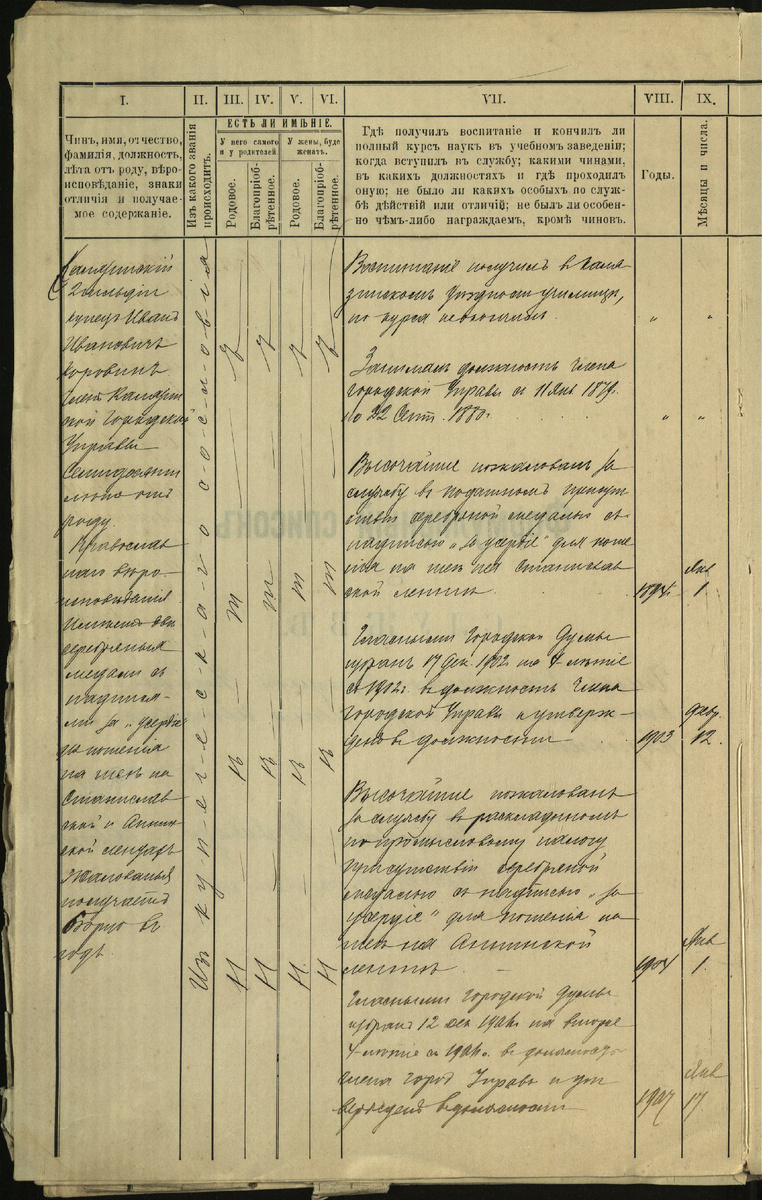 I.
II.
III.
IV.
V.
VI.
VII.
VIII.
IX.
ЕСТЬ ЛИ ИМѢНІЕ.
Чинъ, имя, отчество,
фамилія, должность,
лѣта отъ роду, вѣро-
исповѣданіе, знаки
отличія и получае-
мое содержаніе.
Изъ какого званія
происходитъ.
У него самого
и у родителей.
У жены, буде
женатъ.
Родовое.
Благопріоб-
рѣтенное.
Родовое.
Благопріоб-
рѣтенное.
Гдѣ получилъ воспитаніе и кончилъ ли
полный курсъ наукъ въ учебномъ заведеніи;
когда вступилъ въ службу; какими чинами,
въ какихъ должностяхъ и гдѣ проходилъ
оную; не было ли какихъ особыхъ по служ-
бѣ дѣйствій или отличій; не былъ ли особен-
но чѣмъ-либо награждаемъ, кромѣ чиновъ.
Годы.
Мѣсяцы и числа.
2 гильдіи
купецъ Иванъ
Ивановичъ
Коровинъ
ской Городской
Управы
отъ
роду.
Православ
наго вѣро-
исповѣданія
Имѣетъ двѣ
серебряныя
медали съ
надпися-
ми за „усердіе
для ношенія
на шеѣ на
Станислав
ской и Аннин
ской лентахъ
Жалованья
получаетъ
въ
годъ.
Изъ купеческаго сословія
Нѣтъ
Нѣтъ
Нѣтъ
Нѣтъ
Воспитаніе получилъ въ Каля
зинскомъ Уѣздномъ училищѣ,
но курса не окончилъ.
„ „
Занималъ должность Члена
Городской Управы съ 11 Янв 1879.
по 22 Сент. 1880.
„ „
Высочайше пожалованъ за
службу въ податномъ присут
ствіи серебряной медалью съ
надписью „за усердіе" для ноше
нія на шеѣ на Станислав
ской лентѣ.
Янв
1
Гласными Городской Думы
избранъ 17 Дек. 1902 на 4 лѣтіе
съ 1902 г. въ должность Члена
Городской Управы и утверж-
денъ въ должности
1903
Февр.
12.
Высочайше пожалованъ
за службу въ раскладочномъ
по промысловому налогу
присутствіи серебряной
медалью съ надписью „за
усердіе" для ношенія на
шеѣ на Аннинской
лентѣ. —
1904
Янв
1.
Гласными Городской Думы
избранъ 12 Дек на второе
4 лѣтіе съ въ должность
члена Город Управы и утв
ержденъ въ должности
1907
Янв
17.